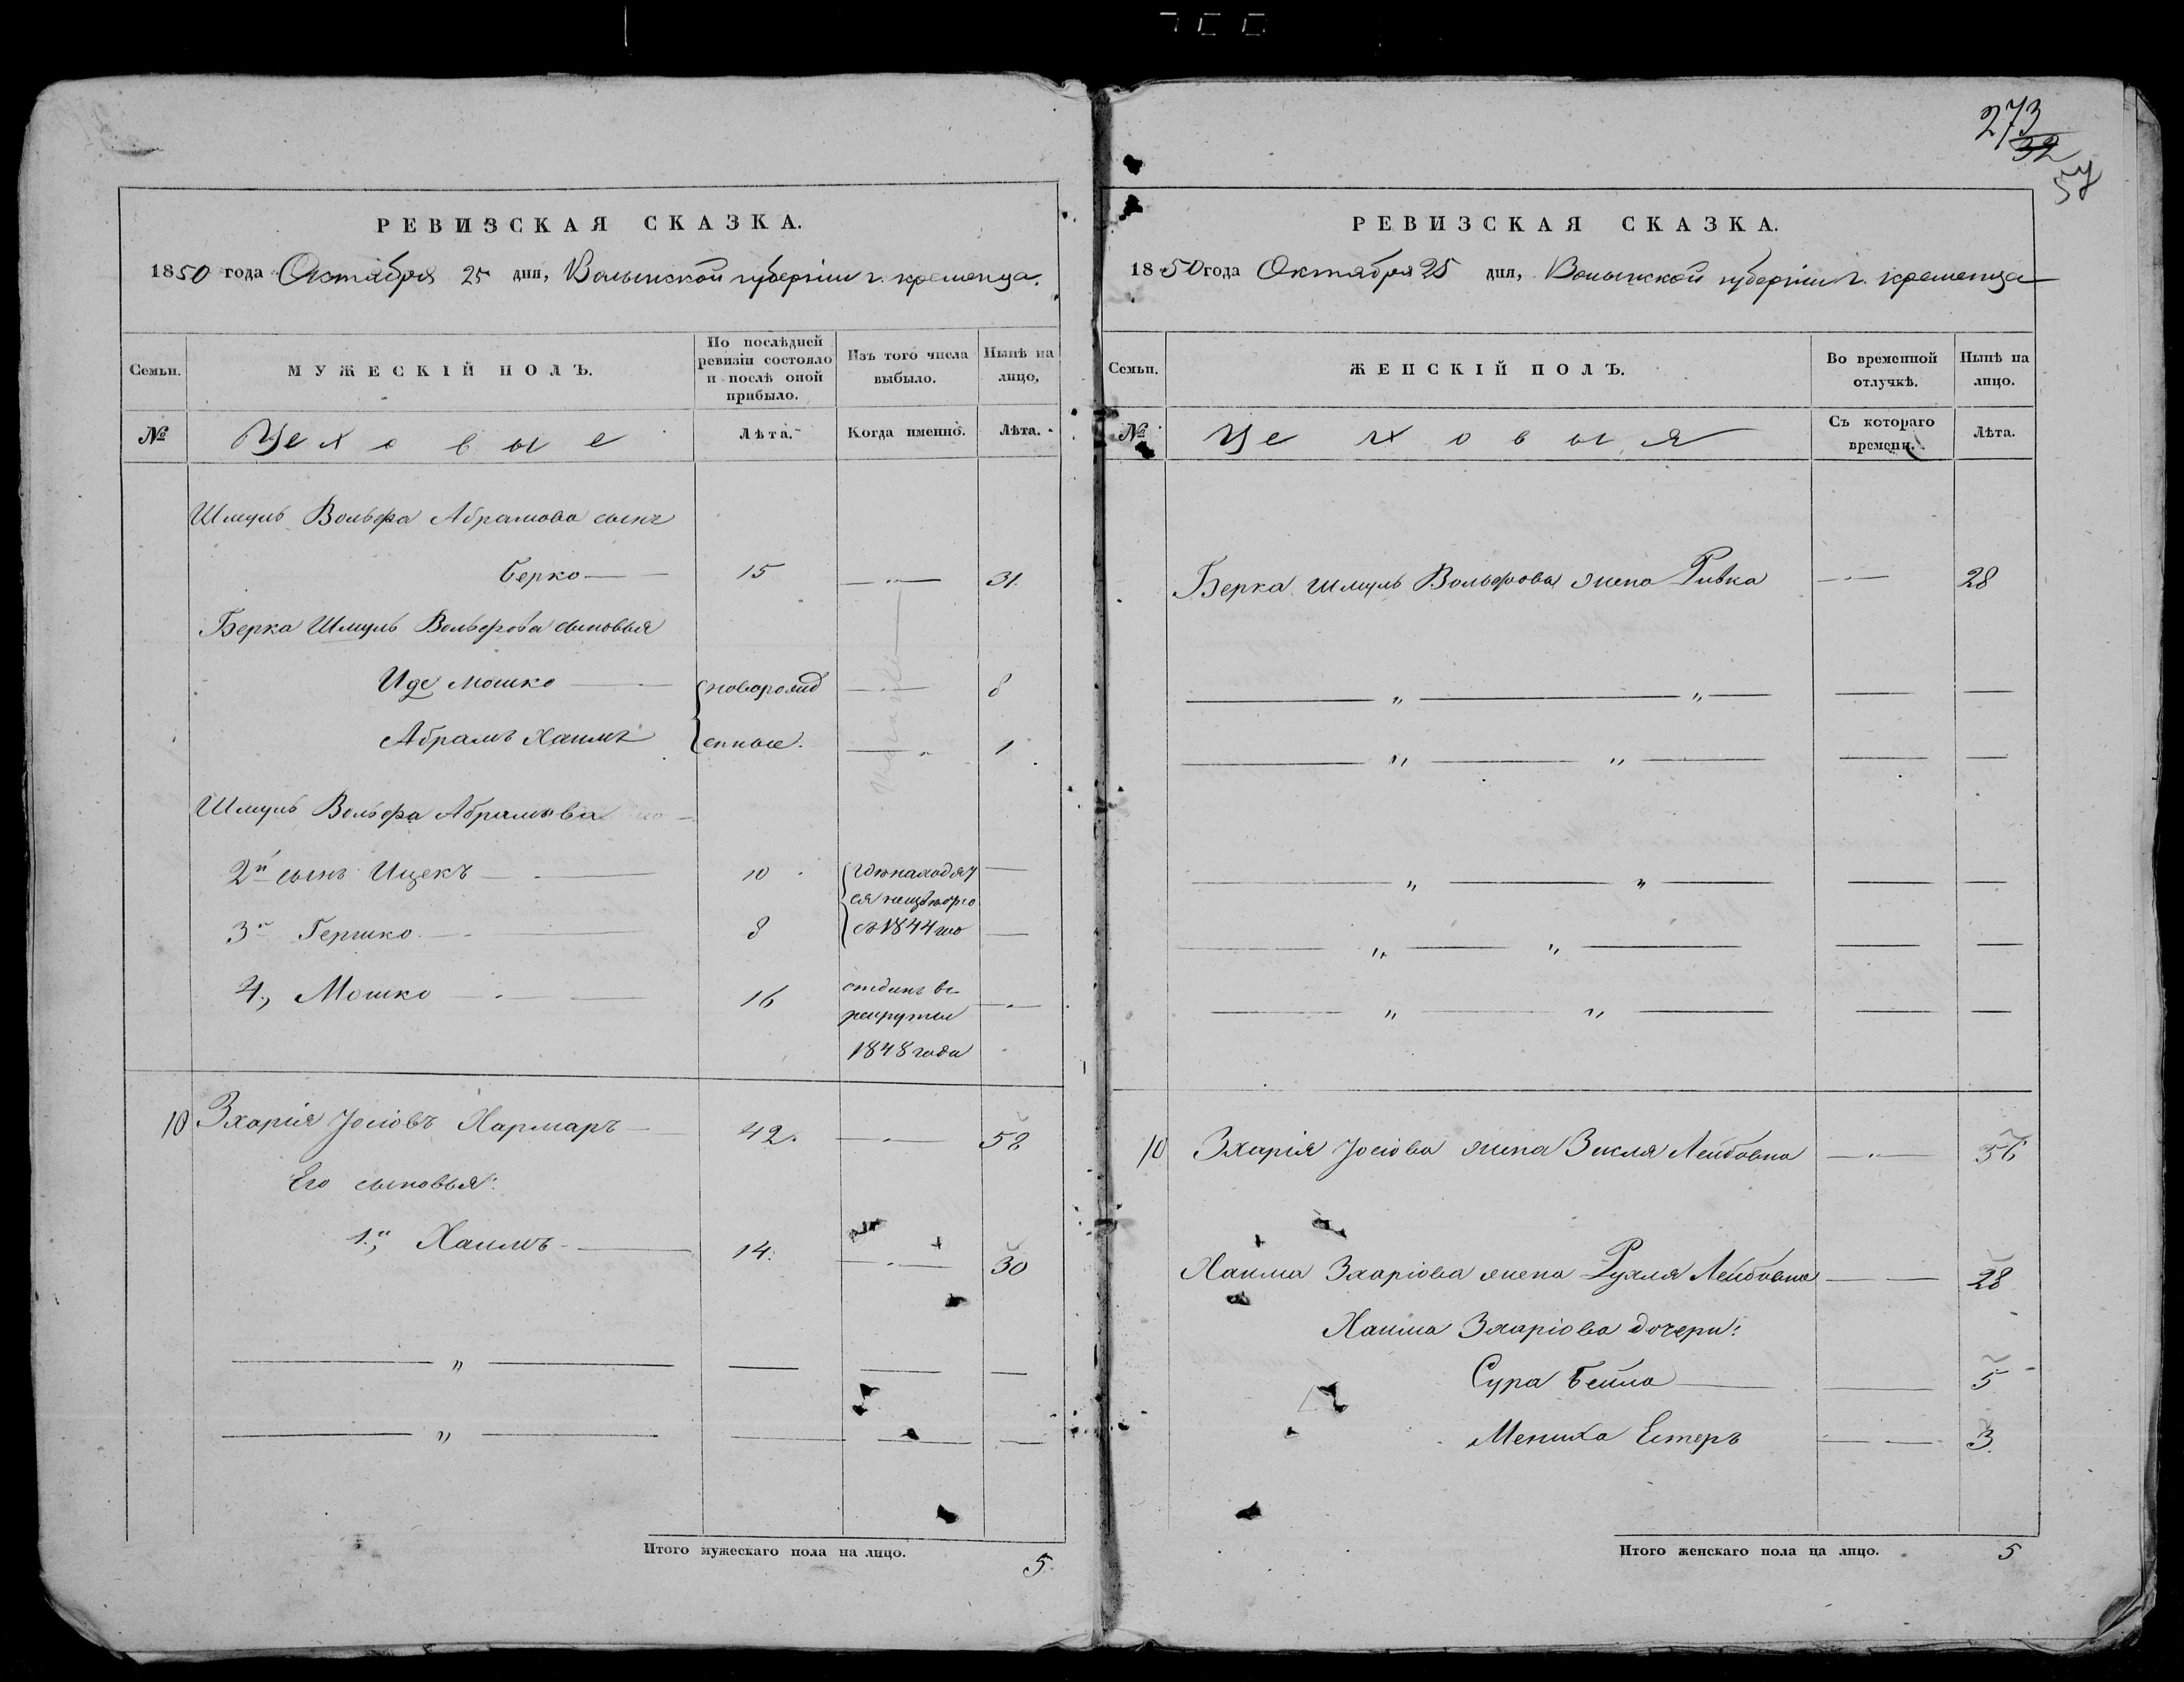 273
32
57
РЕВИЗСКАЯ СКАЗКА.
1850 года Октября 25 дня, Волынской губерніи г. кременца.
Семьи.
МУЖЕСКІЙ ПОЛЪ.
По послѣдней ревизіи состояло и послѣ оной прибыло.
Изъ того числа выбыло.
Нынѣ на лицо,
№
Цеховые
Лѣта.
Когда именно.
Лѣта.
Шмуль Вольфа Абрамова сынъ
Берко — 15 — „ — 31.
Берка Шмуль Вольфова сыновья
Иде Мошко — новорожд — 8
Абрамъ Хаимъ енные. — „ 1
Шмуль Вольфа Абрамова
2й сынъ Ицекъ — 10 —
3й Гершко — 8 —
съ 1844 го
4, Мошко — 16 отданъ въ рекруты 1848 года — „ —
10 Зхарія Іосіовъ Хармаръ — 42. — „ — 58
Его сыновья:
1й, Хаимъ — 14. — „ — 30
— „ — — — —
— „ — — — —
Итого мужескаго пола на лицо. 5.
РЕВИЗСКАЯ СКАЗКА.
1850 года Октября 25 дня, Волынской губерніи г. кременца
Семьи.
ЖЕНСКІЙ ПОЛЪ.
Во временной отлучкѣ.
Нынѣ на лицо.
№
Цеховыя
Съ котораго времени.
Лѣта.
Берка Шмуль Вольфова жена Ривка — „ — 28
— „ — „ — — —
— „ — „ — — —
— „ — „ — — —
— „ — „ — — —
— „ — „ — — —
10 Зхарія Іосіова жена Зисля Лейбовна — „ — 56
Хаима Зхаріова жена Рухля Лейбовна — — 28
Хаима Зхаріова дочери:
Сура Бейла — — 5
Мениха Естеръ — — 3.
Итого женскаго пола на лицо. 5